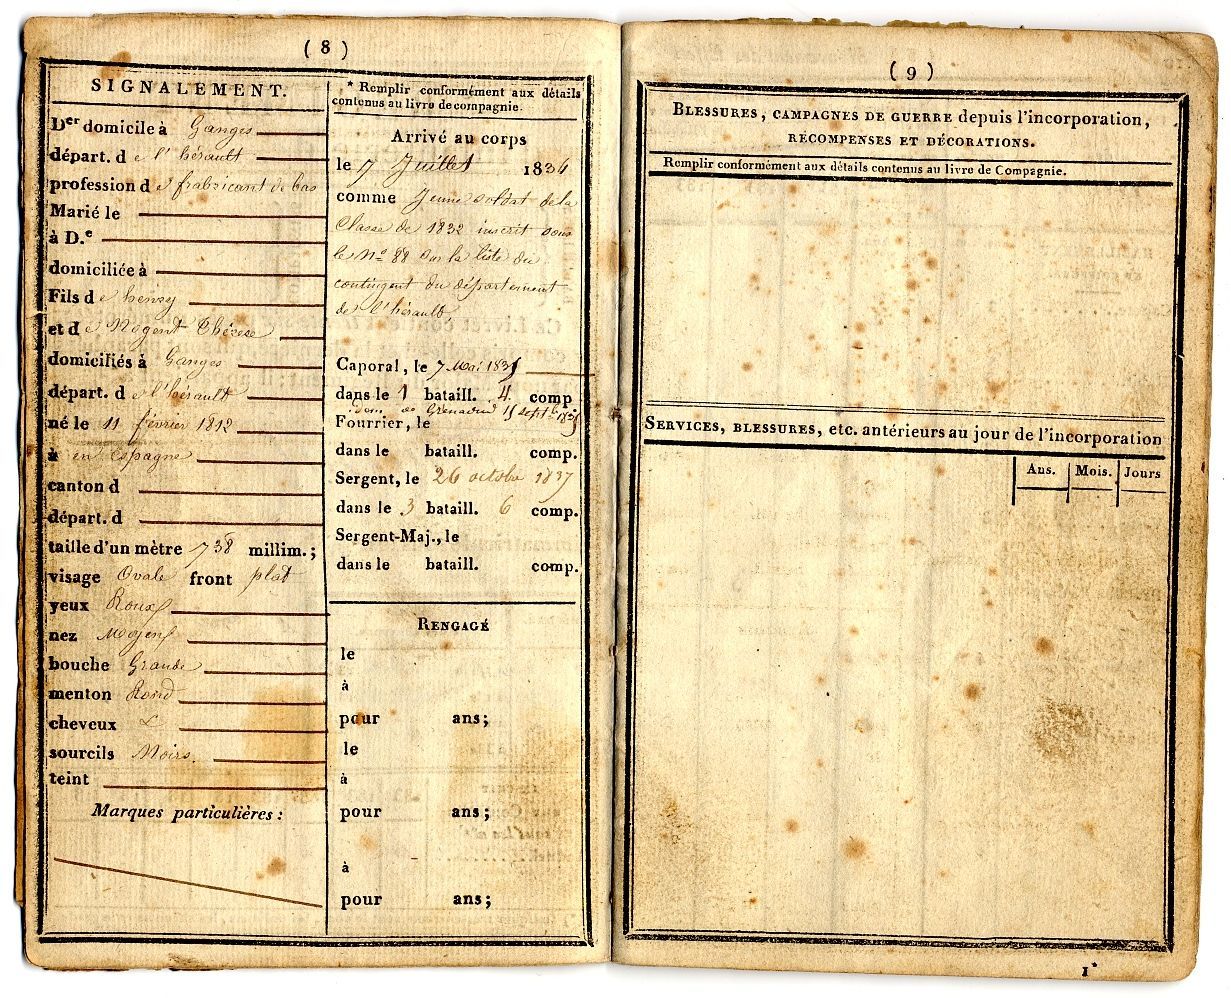 ( 8 )
SIGNALEMENT.
Der domicile à Ganges
départ. de l'hérault
profession de frabricant de bas
Marié le
à D.e
domiciliée à
Fils de henry
et de Nogent Thérese
domiciliés à Ganges
départ. de l'hérault
né le 11 février 1812
à en Espagne
canton d
départ. d
taille d'un mètre 738 millim.;
visage Ovale front plat
yeux Roux
nez Moyen
bouche Grande
menton Rond
cheveux
sourcils Noirs.
teint
Marques particulières :
* Remplir conformément aux détails
contenus au livre de compagnie.
Arrivé au corps
le 7 Juillet 1834
comme Jeune soldat de la
Classe de 1832 inscrit sous
le No 88 sur la liste du
contingent du département
de l'hérault
Caporal, le 7 Mai 1835
dans le 1 bataill. 4 comp
idem de Grenadier 15 septbe 1835
Fourrier, le
dans le bataill. comp.
Sergent, le 26 octobre 1837
dans le 3 bataill. 6 comp.
Sergent-Maj., le
dans le bataill. comp.
RENGAGÉ
le
à
pour ans;
le
à
pour ans;
à
pour ans;
( 9 )
BLESSURES, CAMPAGNES DE GUERRE depuis l'incorporation,
RÉCOMPENSES ET DÉCORATIONS.
Remplir conformément aux détails contenus au livre de Compagnie.
SERVICES, BLESSURES, etc. antérieurs au jour de l'incorporation
Ans. Mois. Jours
1*